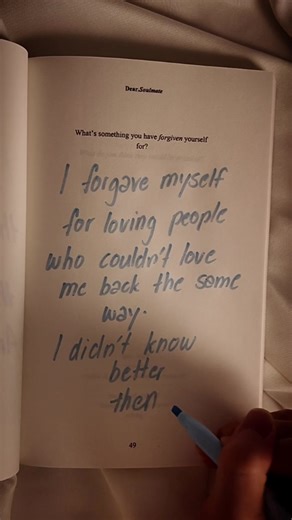 Dear.Soulmate
What's something you have forgiven yourself
for?
I forgave myself
for loving people
who couldn't love
me back the same
way.
I didn't know
better
then
49